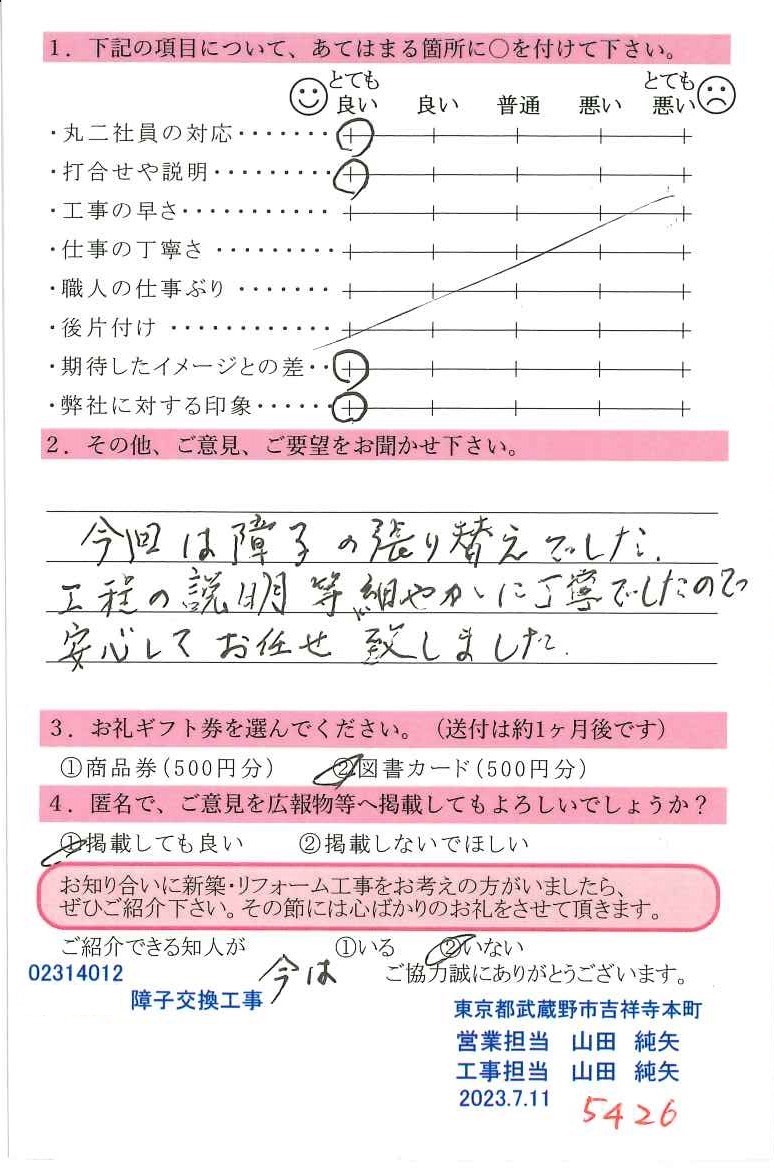 1．下記の項目について、あてはまる箇所に○を付けて下さい。
とても良い 良い 普通 悪い とても悪い
・丸二社員の対応・・・・・・・
・打合せや説明・・・・・・・・・
・工事の早さ・・・・・・・・・・・
・仕事の丁寧さ・・・・・・・・・
・職人の仕事ぶり・・・・・・・
・後片付け・・・・・・・・・・・・
・期待したイメージとの差・・
・弊社に対する印象・・・・・・
2．その他、ご意見、ご要望をお聞かせ下さい。
今回は障子の張り替えでした.
工程の説明等細やかに丁寧でしたので
安心してお任せ致しました.
3．お礼ギフト券を選んでください。（送付は約1ヶ月後です）
①商品券（500円分） ②図書カード（500円分）
4．匿名で、ご意見を広報物等へ掲載してもよろしいでしょうか？
①掲載しても良い ②掲載しないでほしい
お知り合いに新築・リフォーム工事をお考えの方がいましたら、
ぜひご紹介下さい。その節には心ばかりのお礼をさせて頂きます。
ご紹介できる知人が ①いる ②いない
02314012 今は ご協力誠にありがとうございます。
障子交換工事
東京都武蔵野市吉祥寺本町
営業担当 山田 純矢
工事担当 山田 純矢
2023.7.11 5426